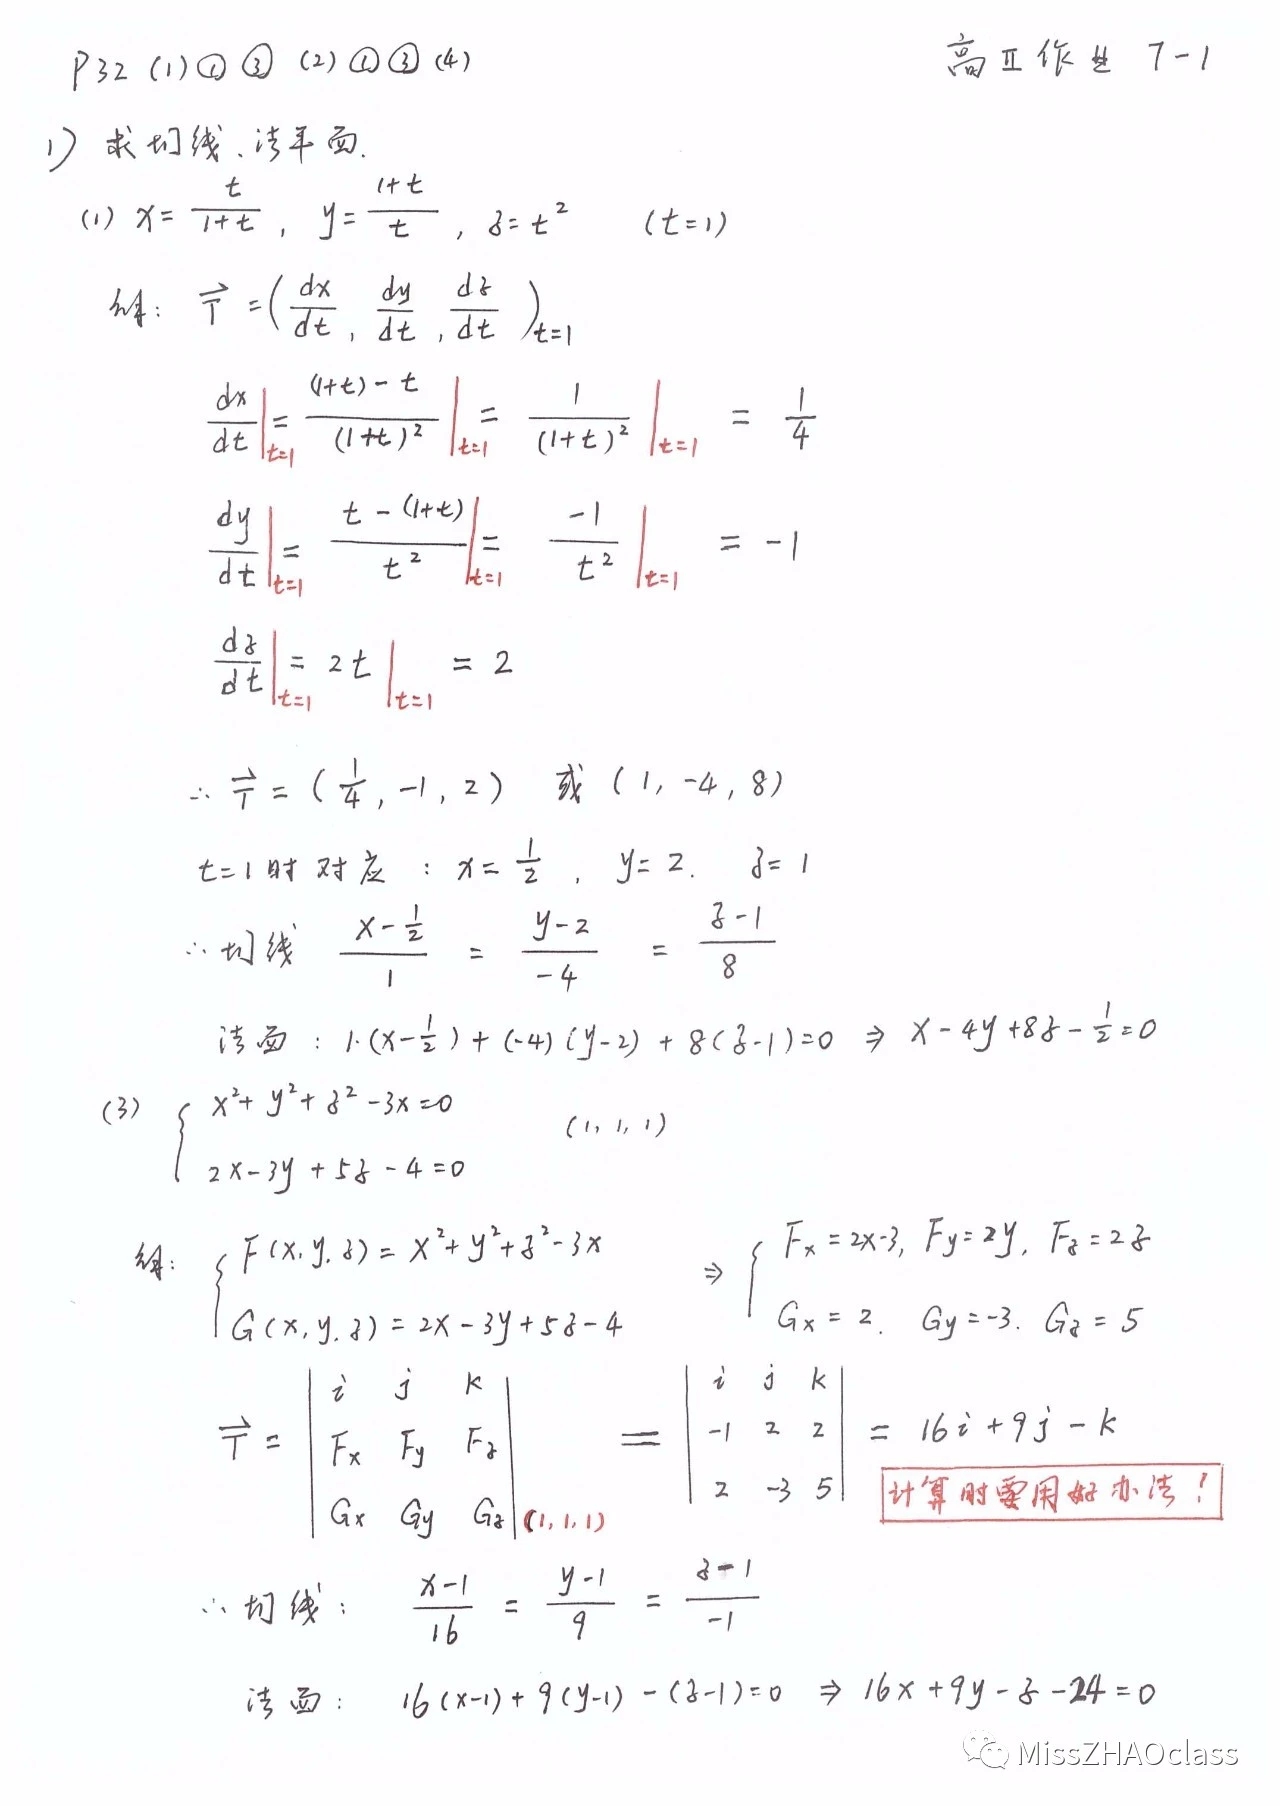 P32 (1) ① ③ (2) ① ③ (4) 高II作业 7-1
1) 求切线、法平面.
(1) x = t/(1+t), y = (1+t)/t, z = t² (t=1)
解: T⃗ = (dx/dt, dy/dt, dz/dt)_{t=1}
dx/dt|_{t=1} = ((1+t)-t)/(1+t)²|_{t=1} = 1/(1+t)²|_{t=1} = 1/4
dy/dt|_{t=1} = (t-(1+t))/t²|_{t=1} = -1/t²|_{t=1} = -1
dz/dt|_{t=1} = 2t|_{t=1} = 2
∴ T⃗ = (1/4, -1, 2) 或 (1, -4, 8)
t=1时对应: x = 1/2, y = 2. z = 1
∴切线 (x-1/2)/1 = (y-2)/-4 = (z-1)/8
法面: 1·(x-1/2)+(-4)(y-2)+8(z-1)=0 ⇒ x-4y+8z-1/2=0
(3) { x²+y²+z²-3x=0 (1, 1, 1)
2x-3y+5z-4=0
解: { F(x,y,z) = x²+y²+z²-3x ⇒ { Fx=2x-3, Fy=2y, Fz=2z
G(x,y,z) = 2x-3y+5z-4 Gx=2. Gy=-3. Gz=5
T⃗ = | i j k | = | i j k | = 16i+9j-k
| Fx Fy Fz | | -1 2 2 |
| Gx Gy Gz |(1,1,1) | 2 -3 5 | 计算时要用好办法!
∴切线: (x-1)/16 = (y-1)/9 = (z-1)/-1
法面: 16(x-1)+9(y-1)-(z-1)=0 ⇒ 16x+9y-z-24=0
MissZHAOclass